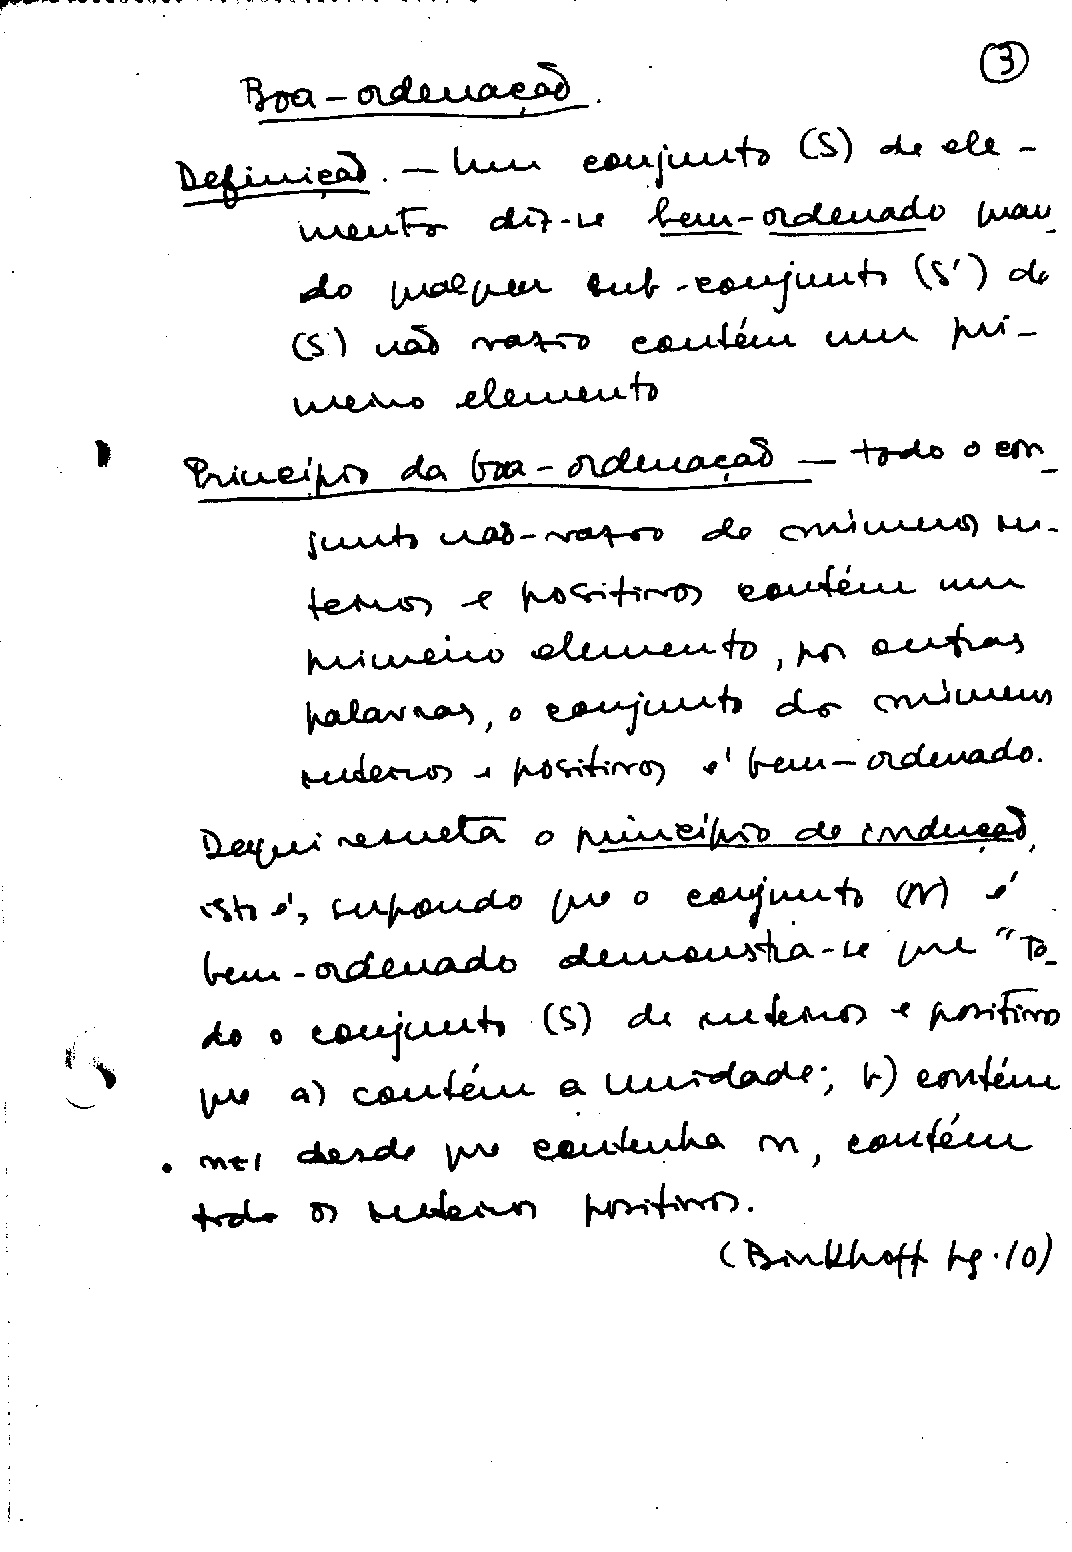 3
Boa-ordenação.
Definição. — Um conjunto (S) de ele-
mentos diz-se bem-ordenado quan-
do qualquer sub-conjunto (S') de
(S) não vazio contém um pri-
meiro elemento
Princípio da boa-ordenação — todo o con-
junto não-vazio de números in-
teiros e positivos contém um
primeiro elemento, por outras
palavras, o conjunto dos números
inteiros e positivos é bem-ordenado.
Daqui resulta o princípio de indução,
isto é, supondo que o conjunto (N) é
bem-ordenado demonstra-se que "To-
do o conjunto (S) de inteiros e positivos
que a) contém a unidade; b) contém
n+1 desde que contenha n, contém
todos os inteiros positivos.
(Birkhoff pg. 10)